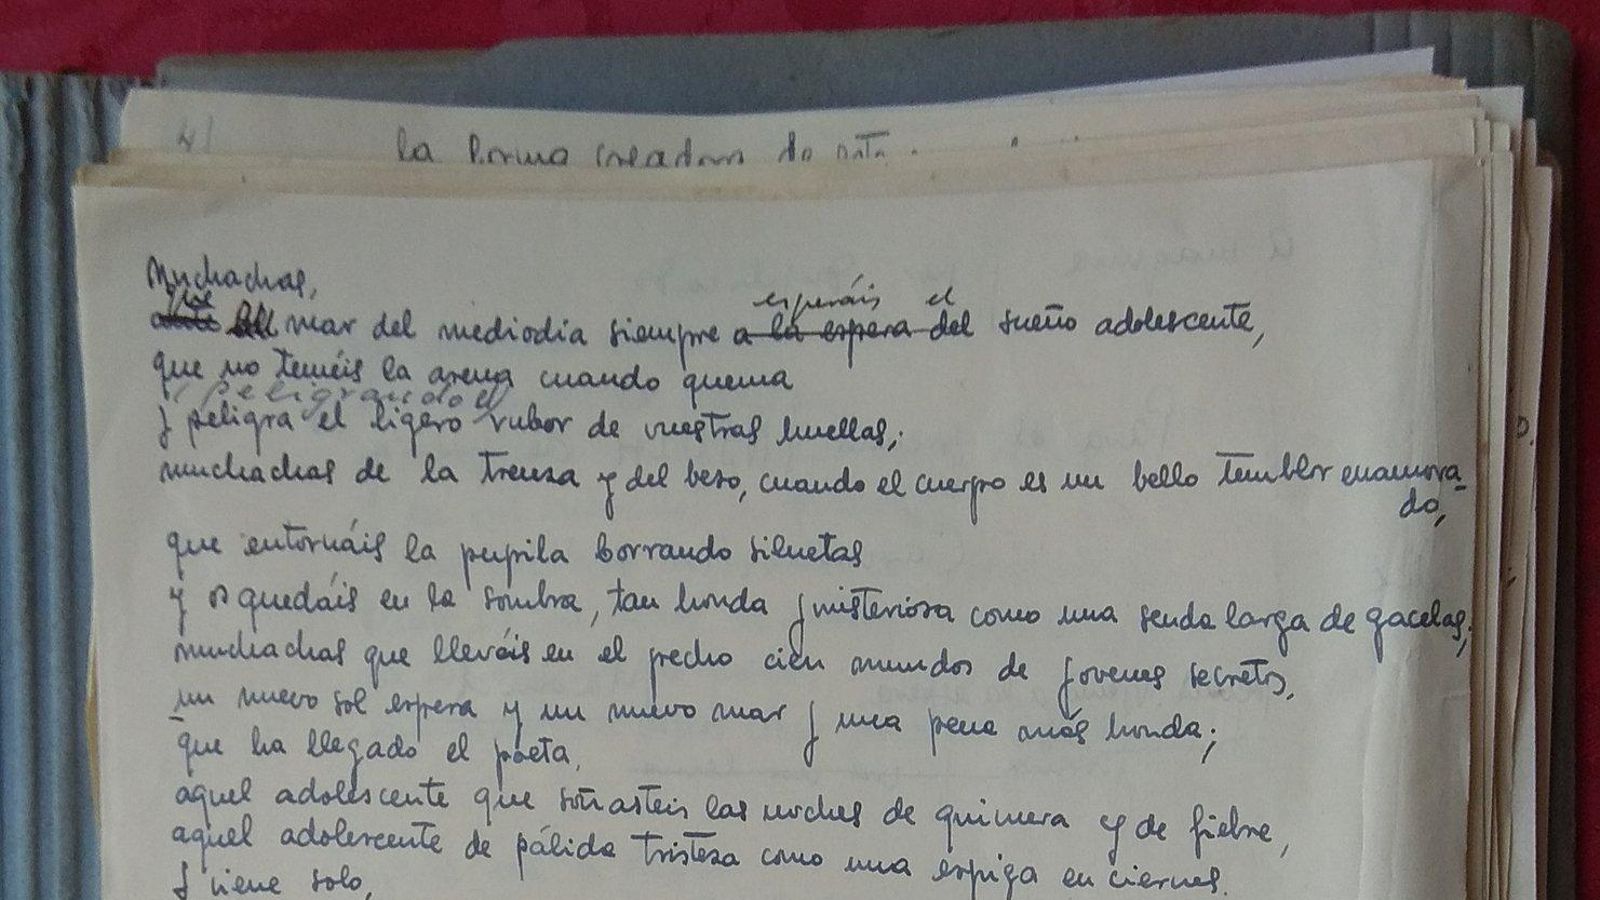 la forma creadora de
Muchachas,
que
esperáis el
mar del mediodía siempre a la espera del sueño adolescente,
que no teméis la arena cuando quema
peligrando el
y peligra el ligero rubor de vuestras huellas;
muchachas de la trenza y del beso, cuando el cuerpo es un bello temblor enamora-
do,
que entornáis la pupila borrando siluetas
y os quedáis en la sombra, tan honda y misteriosa como una senda larga de gacelas;
muchachas que lleváis en el pecho cien mundos de jóvenes secretos,
un nuevo sol espera y un nuevo mar y una pena más honda;
que ha llegado el poeta,
aquel adolescente que soñasteis las noches de quimera y de fiebre,
aquel adolescente de pálida tristeza como una espiga en ciernes.
Y viene solo,